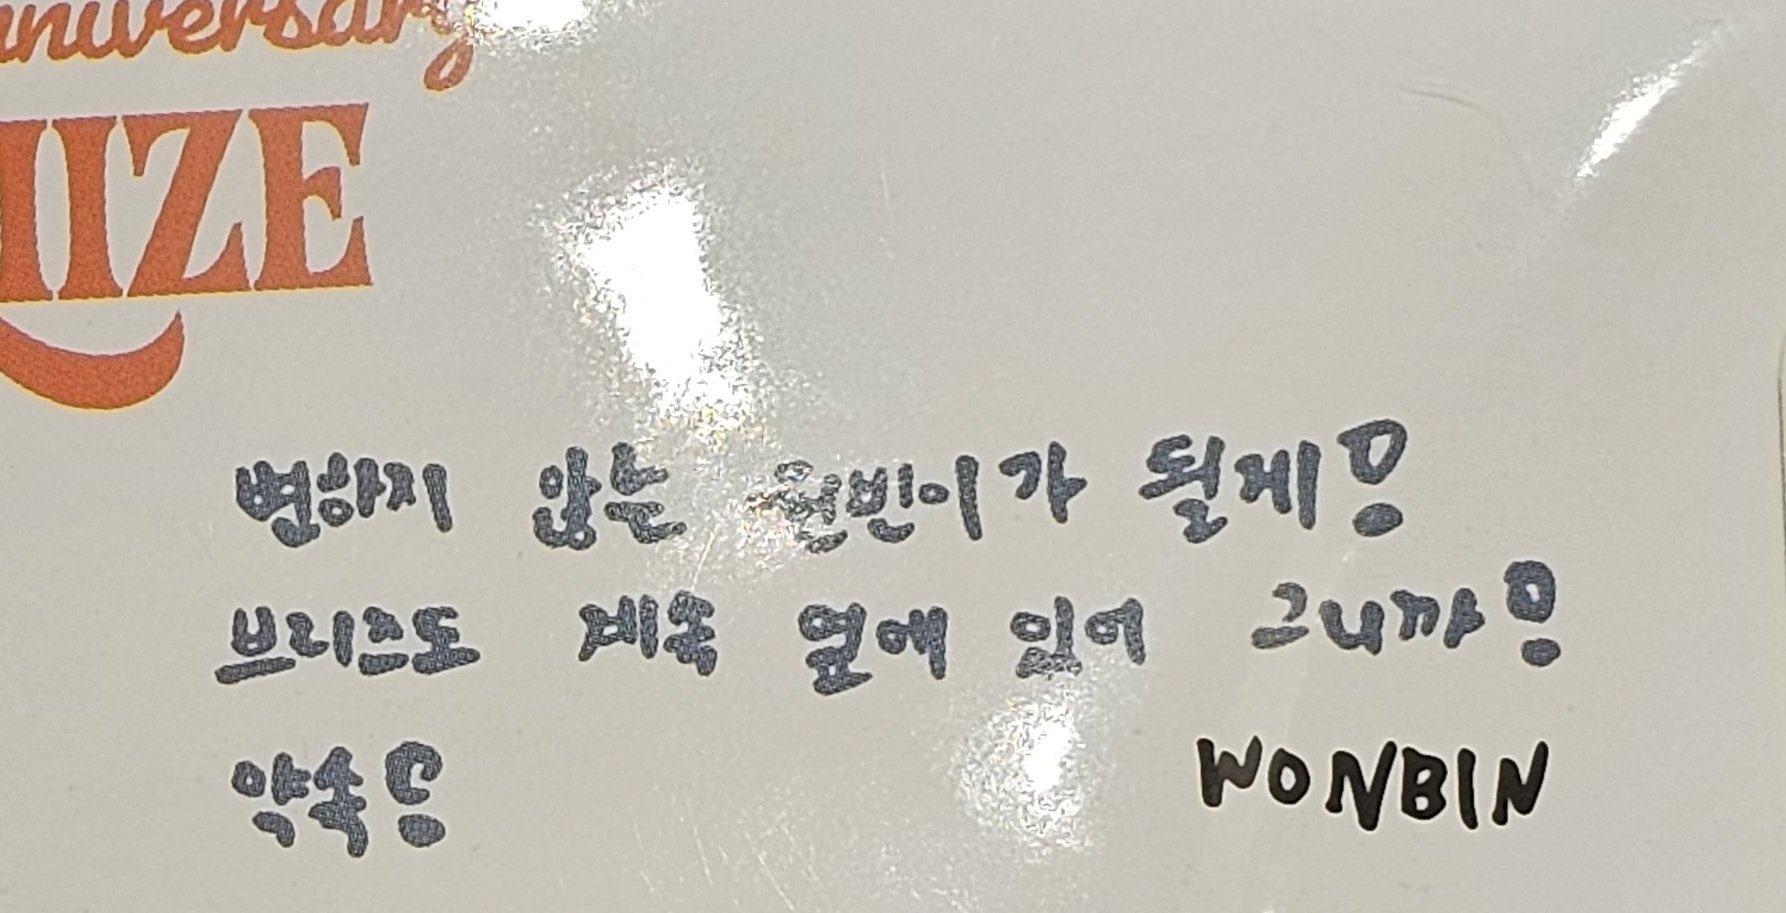 anniversary
RIIZE
변하지 않는 원빈이가 될게!
브리즈도 계속 옆에 있어 그니까!
약속!
WONBIN